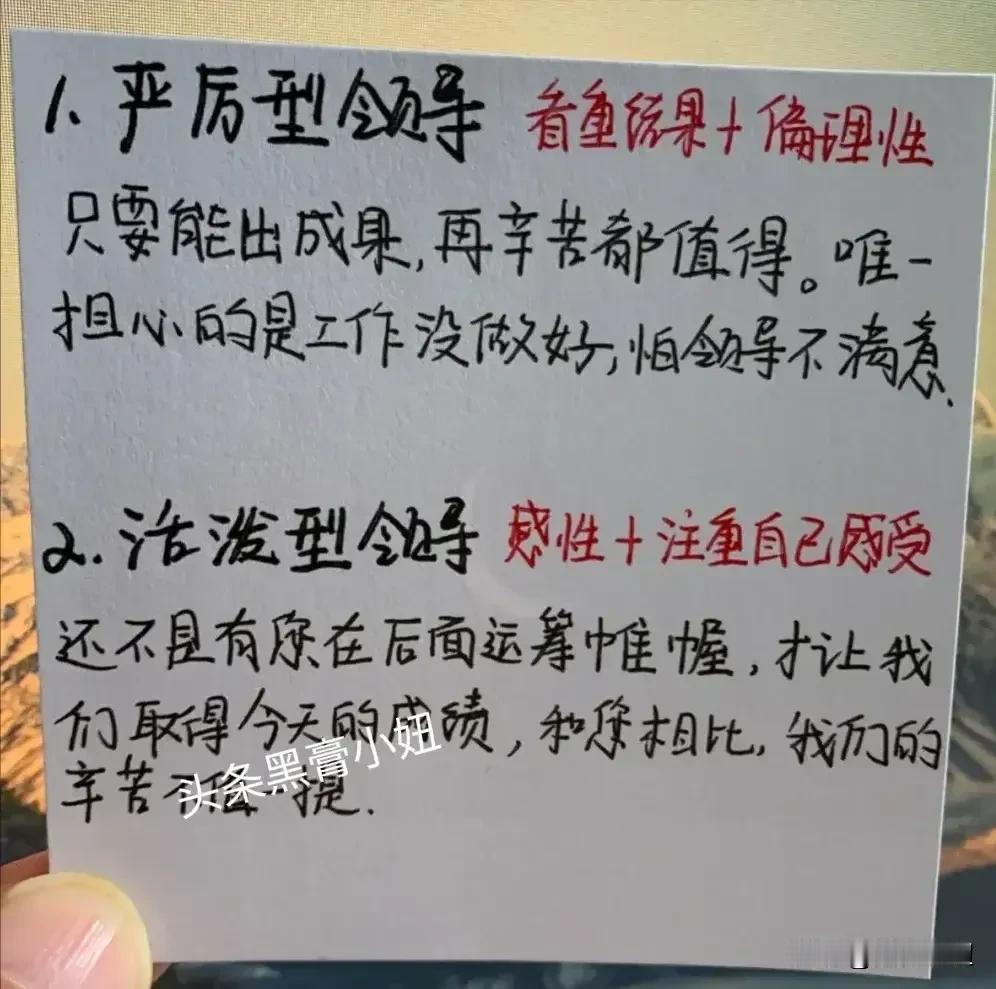 1. 严厉型领导 看重结果+偏理性
只要能出成果,再辛苦都值得。唯一
担心的是工作没做好,怕领导不满意.
2. 活泼型领导 感性+注重自己感受
还不是有您在后面运筹帷幄,才让我
们取得今天的成绩,和您相比,我们的
辛苦不值一提.
头条黑膏小妞